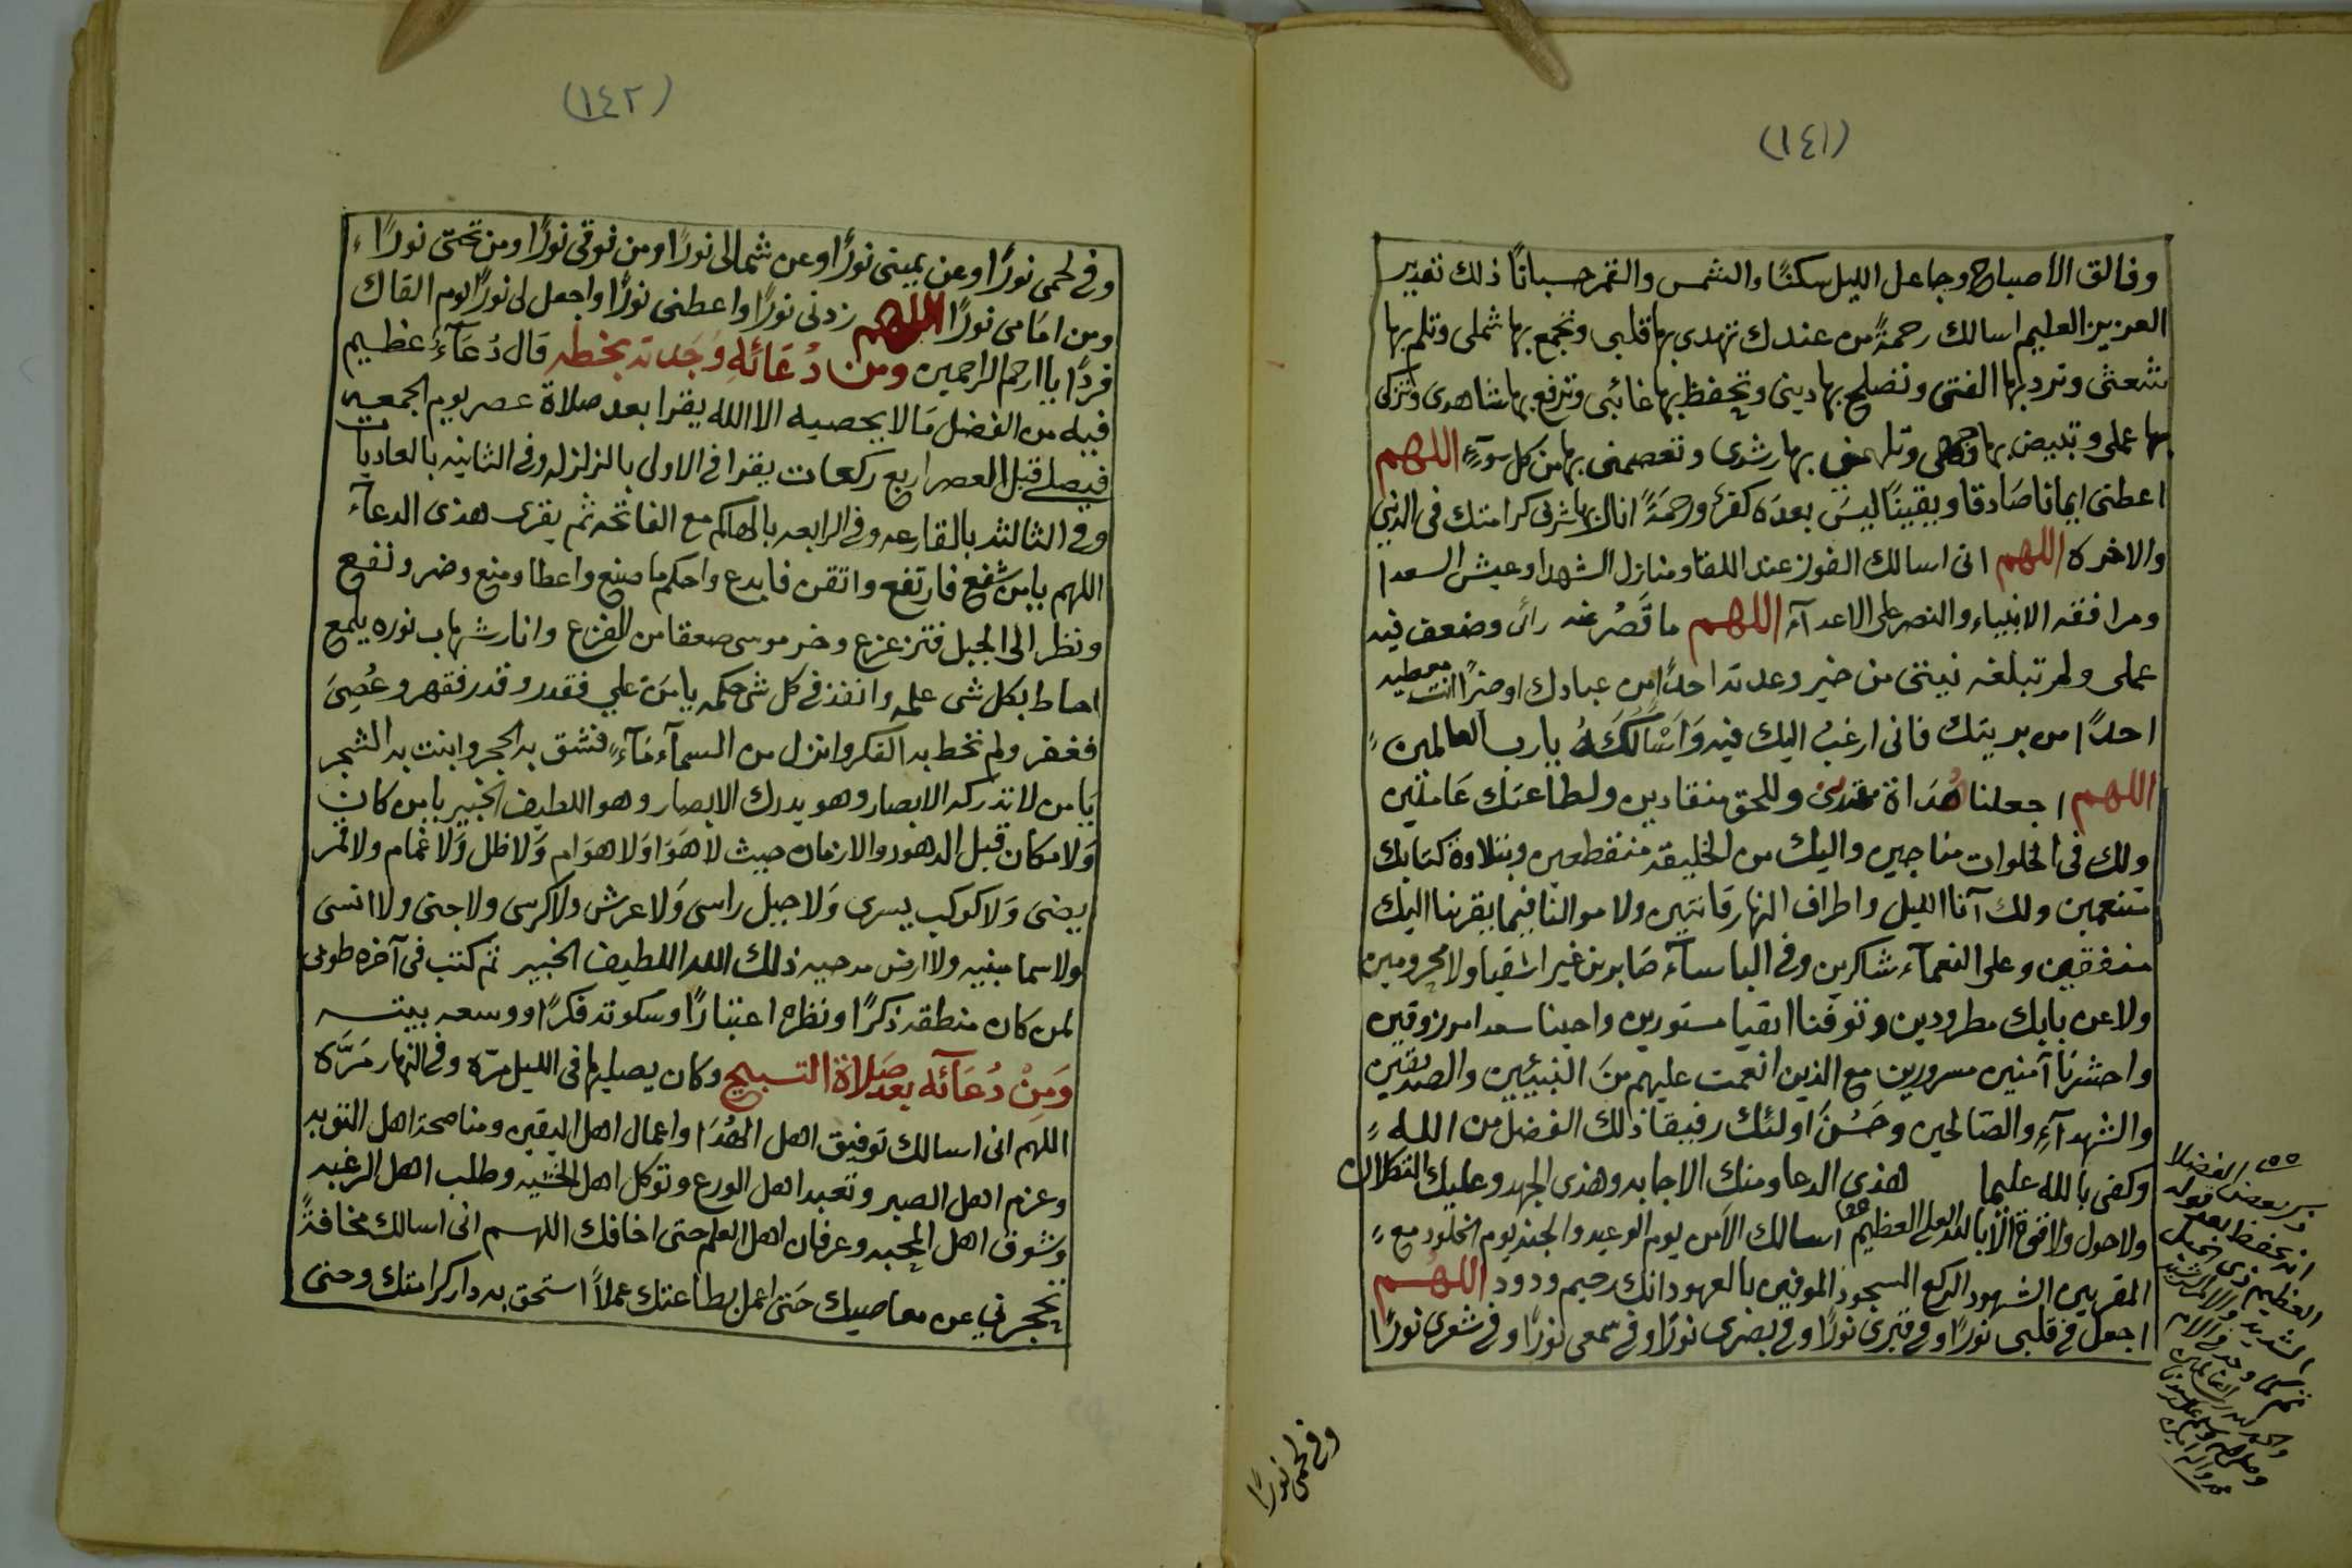 (١٤١)
وفالق الاصباح وجاعل الليل سكنًا والشمس والقمر حسبانًا ذلك تقدير
العزيز العليم اسالك رحمةً من عندك تهدى بها قلبى وتجمع بها شملى وتلم بها
شعثى وترد بها الفتى وتصلح بها دينى وتحفظ بها غائبى وترفع بها شاهدى وتزكى
بها عملى وتبيض بها وجهى وتلهمنى بها رشدى وتعصمنى بها من كل سوءٍ اللهم
اعطنى ايمانا صَادقا ويقينًا ليسَ بعدَه كفرٌ ورحمَةً انال بها شرف كرامتك فى الدنيا
والاخره اللهم انى اسالك الفوز عند اللقا ومنازل الشهدا وعيش السعدا
ومرافقه الانبياء والنصر على الاعدآء اللهم ما قَصُر عنه رائى وضعف فيه
عملى ولم تبلغه نيتى من خير وعدته احدًا من عبادك او خيرًا انت معطيه
احدًا من بريتك فانى ارغبُ اليك فيه وَاَسْالُكَهُ يا رب العالمين
اللهم اجعلنا هُدَاة مهتدين وللحق منقادين ولطاعتك عَاملين
ولك فى الخلوات مناجين واليك من الخليقه منقطعين وبتلاوة كتابك
متنعمين ولك آنا الليل واطراف النهار قانتين ولاموالنا فيما يقربنا اليك
منفقين وعلى النعمآء شاكرين وفى الباسآء صَابرين غير اشقيا ولا محرومين
ولا عن بابك مطرودين وتوفنا اتقيا مستورين واحينا سعدا مرزوقين
واحشرنَا آمنين مسرورين مع الذين انعمت عليهم منَ النبيئين والصديقين
والشهدآءِ والصَالحين وحَسُنَ اولئك رفيقا ذلك الفضل من الله
وكفى بالله عليما هذى الدعا ومنك الاجابه وهذى الجهد وعليك التكلان
ولاحول ولاقوة الا بالله العلي العظيم اسالك الاَمن يوم الوعيد والجنه يوم الخلود مع
المقربين الشهود الركع السجود الموفين بالعهود انك رحيم ودود اللهُم
اجعل فى قلبى نورًا وفى قبرى نورًا وفى بصرى نورًا وفى سمعى نورًا وفى شعرى نورًا
وفى لحمى نورًا
ذكر بعض الفضلا
انه يحفظ بعد قوله
العظيم ذى الحبل
الشديد والامر الرشيد
(١٤٢)
وفى لحمى نورًا وعن يمينى نورًا وعن شمالى نورًا ومن فوقى نورًا ومن تحتى نورًا
ومن امَامى نورًا اللهم زدنى نورًا واعطنى نورًا واجعل لى نورًا يوم القاك
فردًا يا ارحم الراحمين ومن دُعَائهِ وَجَدته بخطه قال دُعَآءٌ عظيم
فيه من الفضل مَا لا يحصيه الا الله يقرا بعد صلاة عصر يوم الجمعه
فيصلى قبل العصر اربع ركعات يقرا فى الاولى بالزلزله وفى الثانيه بالعاديات
وفى الثالثه بالقارعه وفى الرابعه بالهاكم مع الفاتحه ثم يقرى هذى الدعآء
اللهم يا من شفع فارتفع واتقن فابدع واحكم ما صنع واعطا ومنع وضر ونفع
ونظر الى الجبل فتزعزع وخر موسى صعقا من الفزع وانار شهاب نوره يلمع
احاط بكل شى علمه وانفذ فى كل شى حكمه يا مَن علي فقدر وقدر فقهر وعُصِىَ
فغفر ولم تحط به الفكر وانزل من السمآء مَآءً فشق به الحجر وانبت به الشجر
يَا من لا تدركه الابصار وهو يدرك الابصار وهو اللطيف الخبير يا من كان
وَلا مكان قبل الدهور والازمان حيث لا هَوَا وَلا هوَام وَلا ظل وَلا غمام ولا قمر
يضى وَلا كوكب يسرى وَلا جبل راسى وَلا عرش ولا كرسى ولا جنى ولا انسى
ولا سما مبنيه ولا ارض مدحيه ذلك الله اللطيف الخبير ثم كتب فى آخره طوبى
لمن كان منطقه ذكرًا ونظره اعتبارًا وسكوته فكرًا ووسعه بيته
وَمِنْ دُعَآئه بعد صَلاة التسبيح وكان يصليها فى الليل مرّه وفى النهار مَرَّه
اللهم انى اسالك توفيق اهل الهُدَا واعمال اهل اليقين ومناصحة اهل التوبه
وعزم اهل الصبر وتعبد اهل الورع وتوكل اهل الخشيه وطلب اهل الرغبه
وشوق اهل المحبه وعرفان اهل العلم حتى اخافك اللهم انى اسالك مخافةً
تحجزني عن معاصيك حَتى اعمل بطاعتك عملاً استحق به دار كرامتك وحتى